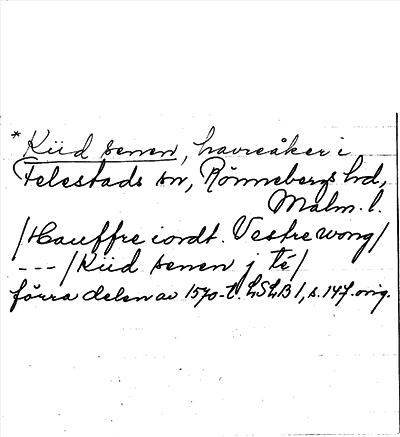 * Kiid senen, havreåker i
Felestads sn, Rönnebergs hd,
Malm. l.
/Hauffre iordt. Vestre wong/
--- /Kiid senen j té/
förra delen av 1570-t. LSLB 1, s. 147. orig.